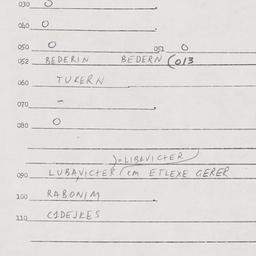 030 O
040 O
050 O 051 O
052 BEDERIN BEDERN (013
060 TUKERN
070 -
080 O
)+LIBAVICHER
090 LUBAVICHER (em ETLEXE GERER
100 RABONIM
110